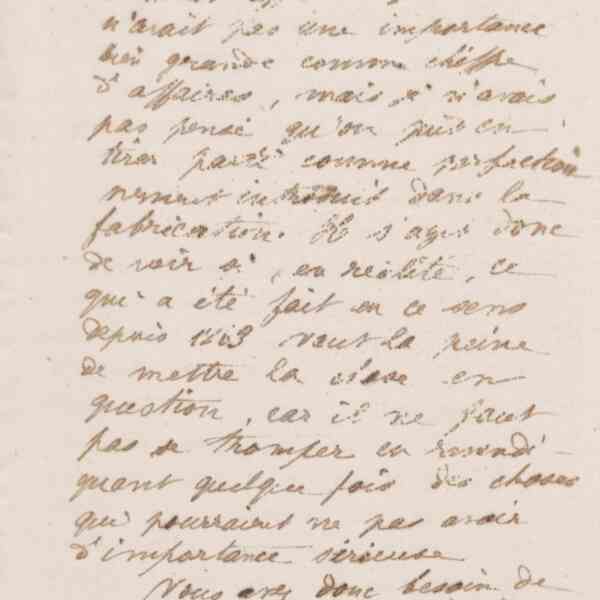 n'avait pas une importance
bien grande comme chiffre
d'affaires, mais je n'avais
pas pensé qu'on put en
tirer parti comme perfection
nement introduit dans la
fabrication. Il s'agit donc
de voir si, en réalité, ce
qui a été fait en ce sens
depuis vaut la peine
de mettre la chose en
question, car il ne faut
pas se tromper en revendi-
quant quelque fois des choses
qui pourraient ne pas avoir
d'importance sérieuse
Vous avez donc besoin de